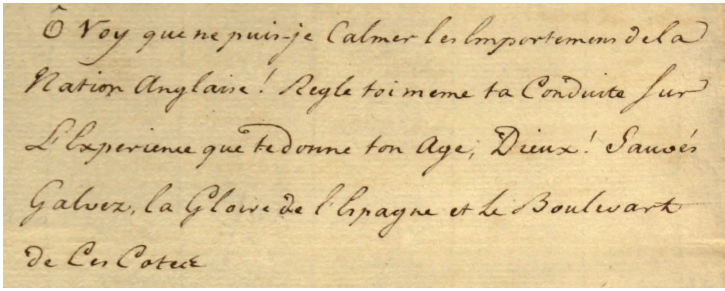 Ô Roy que ne puis-je Calmer les Emportemens de la
Nation Anglaise! Regle toi meme ta Conduite sur
L'Experience que te donne ton Age; Dieux! Sauvés
Galvez, la Gloire de l'Espagne et le Boulevart
de Ces Cotes